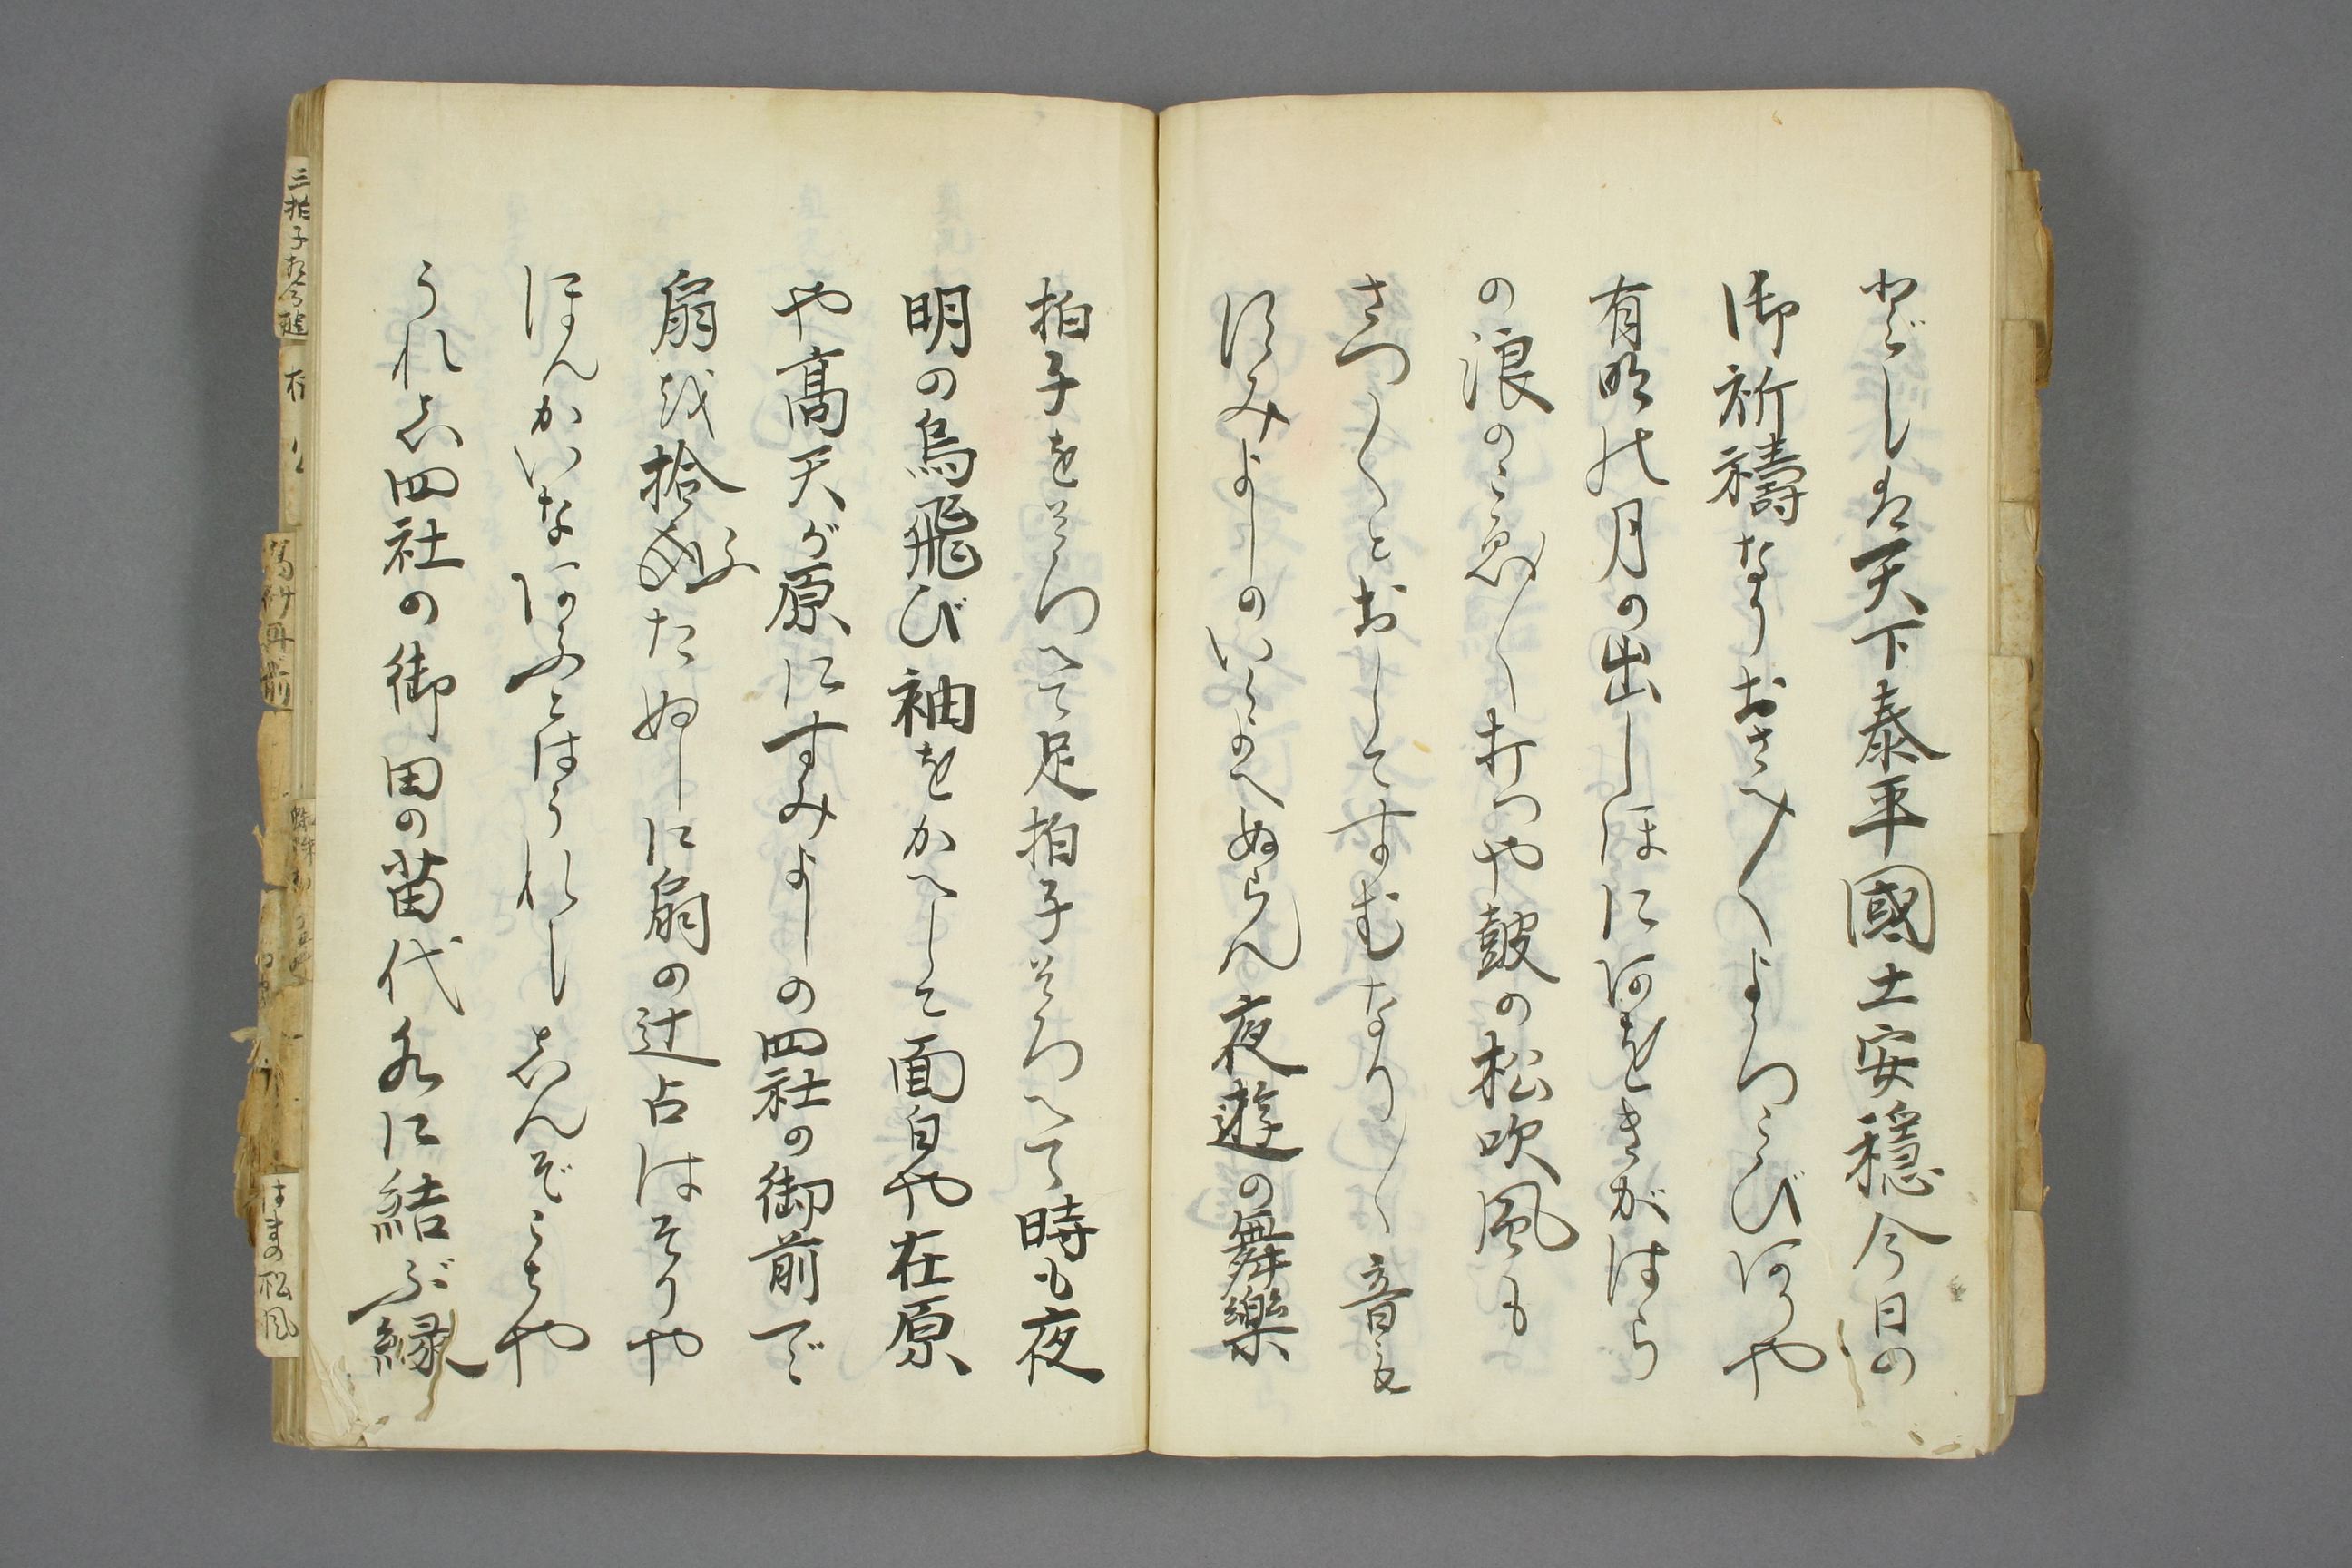 天下泰平國土安穏今日の
御祈禱なりおさへ〱よろこびありや
有明の月の出しほにあをきがはら
の浪のこゑ〲打つや鼓の松吹風も
さつ〱とおしてすむなり〱音も
すみよしのいくよへぬらん夜遊の舞樂
拍子をそろへて足拍子そろへて時も夜
明の烏飛び袖をかへして面白や在原
や高天が原にすみよしの四社の御前で
扇を拾ふたぬしに扇の辻占はそりや
ほんかいなあふとはうれし志んぞこちや
うれ志四社の御田の苗代水に結ぶ縁
高砂丹前
はまの松風